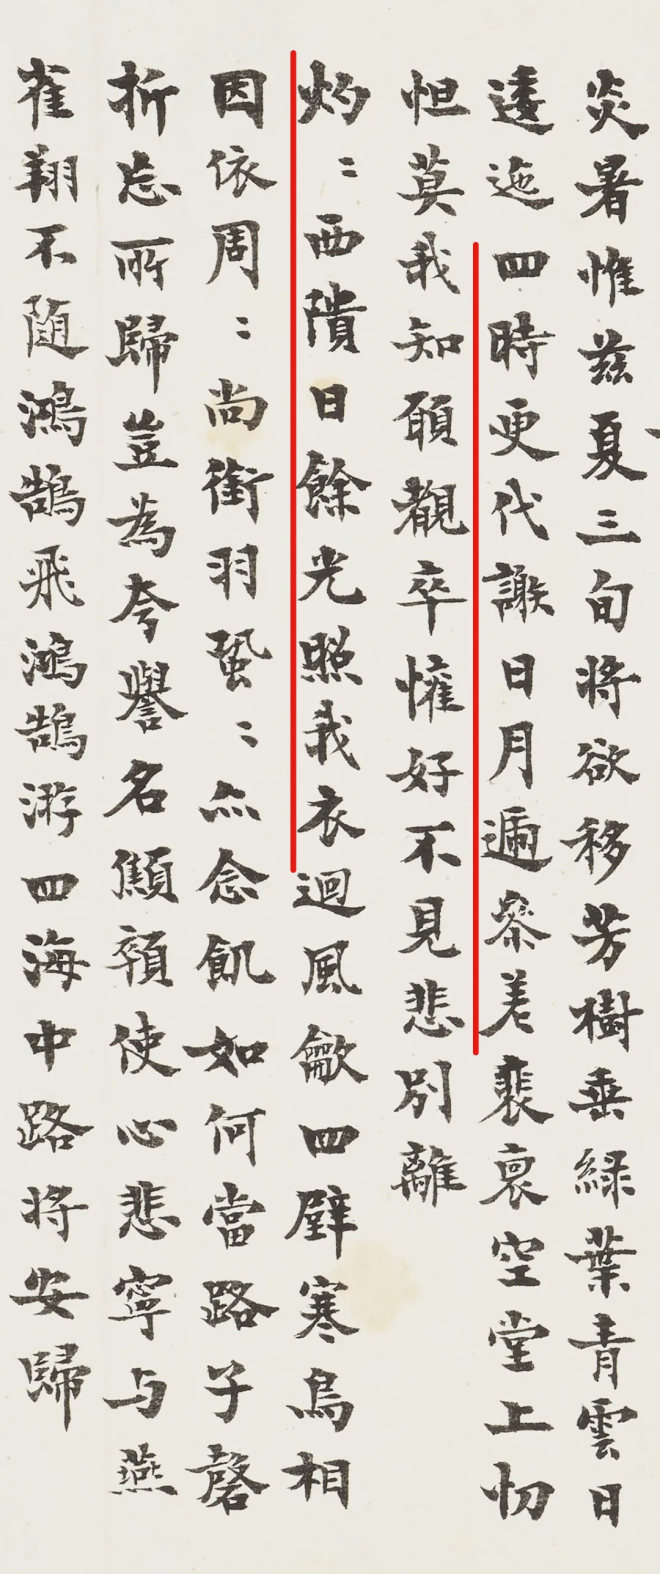 炎暑惟兹夏三旬将欲移芳樹垂緑葉青雲日
逶迤四時更代謝日月遞參差裴裒空堂上忉
怛莫我知願覩卒懽好不見悲別離
灼〻西隤日餘光照我衣迴風龡四壁寒鳥相
因依周〻尚銜羽蛩〻亦念飢如何當路子磬
折忘所歸豈為夸譽名顦顇使心悲寧与燕
雀翔不随鴻鵠飛鴻鵠游四海中路将安歸